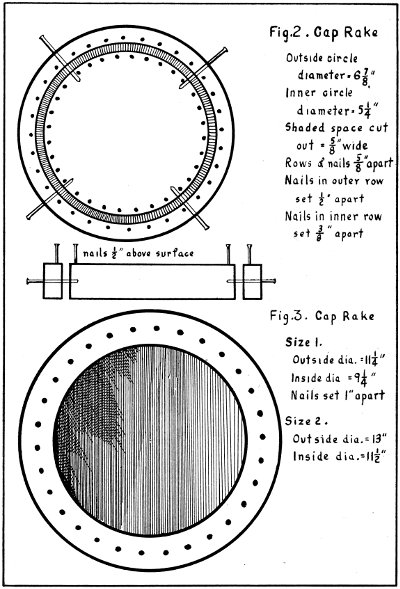 Fig.2. Cap Rake
Outside circle
diameter = 6 7/8"
Inner circle
diameter = 5 1/4"
Shaded space cut
out = 5/8" wide
Rows of nails 5/8" apart
Nails in outer row
set 1/2" apart
Nails in inner row
set 3/8" apart
nails 1/2" above surface
Fig.3. Cap Rake
Size 1.
Outside dia. = 11 1/4"
Inside dia = 9 1/4"
Nails set 1" apart
Size 2.
Outside dia. = 13"
Inside dia. = 11 1/2"